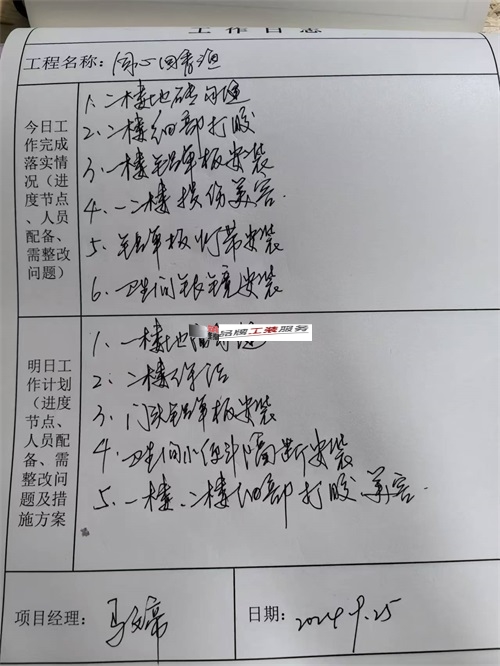 工作日志
工程名称：同心回春渔
今日工作完成落实情况（进度节点、人员配备、需整改问题）
1. 二楼地砖勾逢
2. 二楼细部打胶
3. 一楼铝单板安装
4. 一二楼损伤美容.
5. 铝单板灯带安装
6. 卫生间银镜安装
品牌工装服务
明日工作计划（进度节点、人员配备、需整改问题及措施方案
1. 一楼地
2. 二楼保洁
3. 门头铝单板安装
4. 卫生间小便斗隔断安装
5. 一楼、二楼细部打胶美容.
项目经理：马
日期：2024.9.25